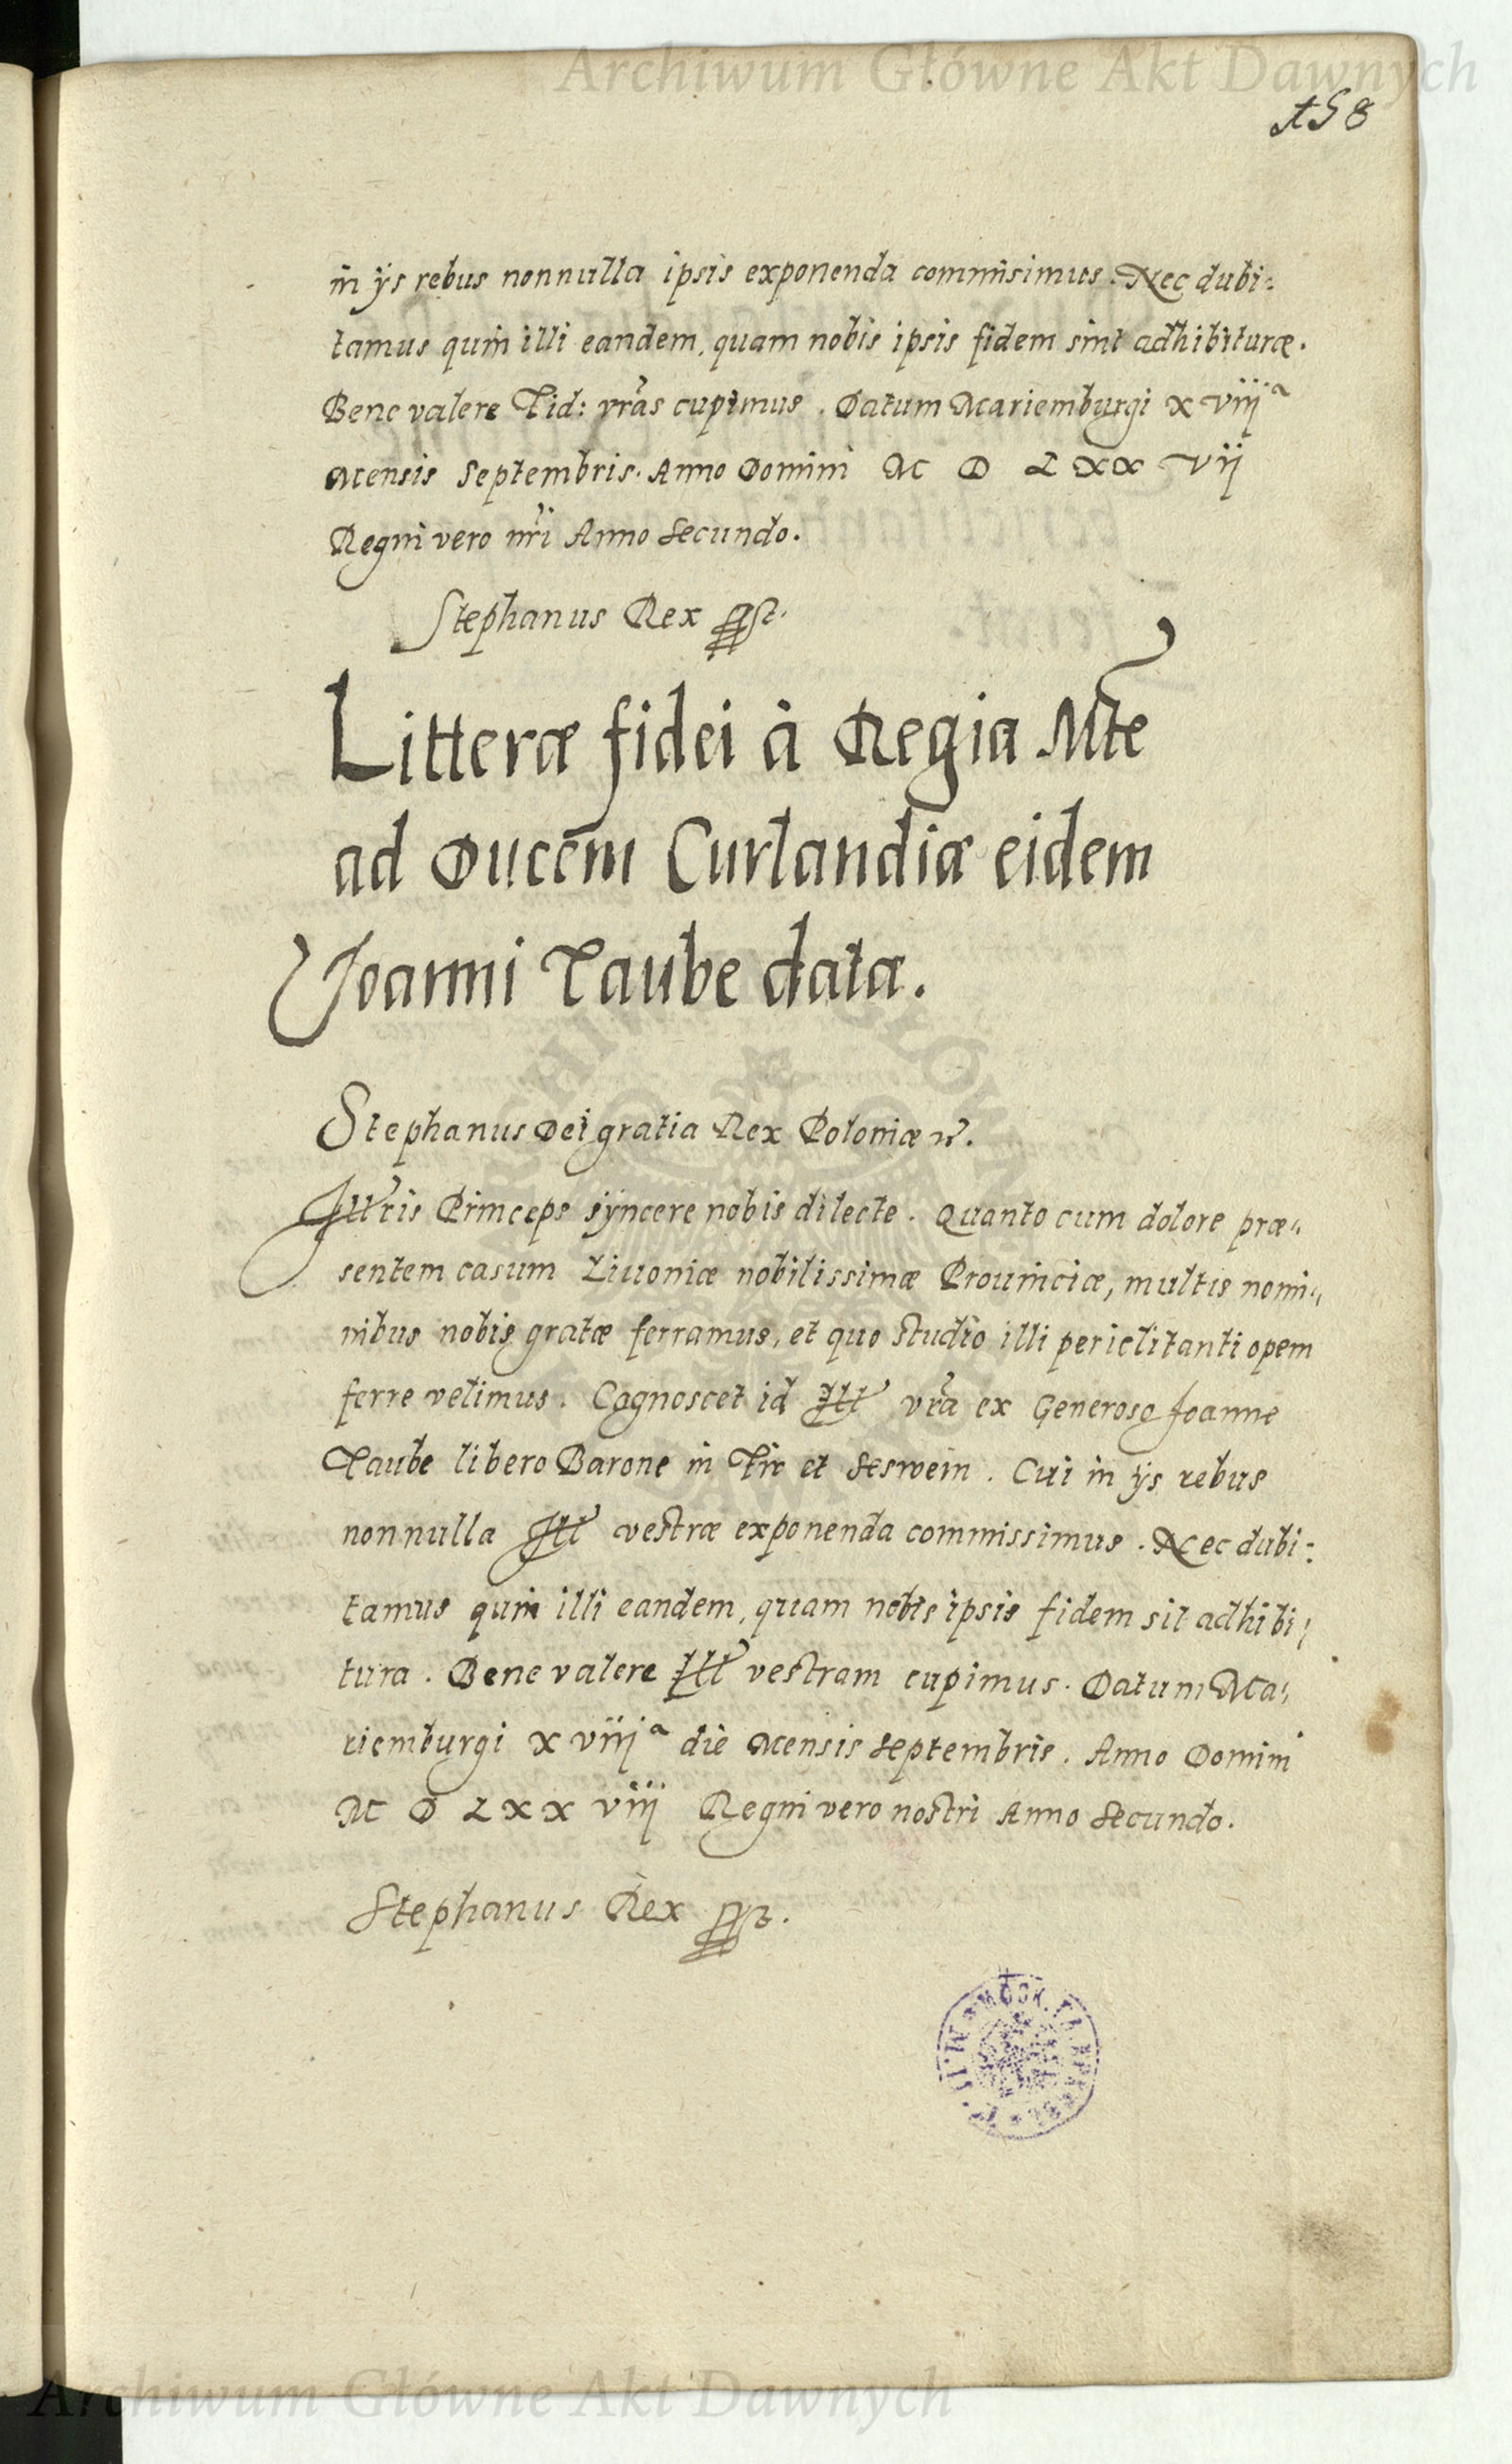 Archiwum Główne Akt Dawnych
158
in ijs rebus nonnulla ipsis exponenda commisimus. Nec dubi:
tamus quin illi eandem, quam nobis ipsis fidem sint adhibituræ.
Bene valere Fid: vras cupimus. Datum Mariemburgi XViij a
Mensis Septembris. Anno Domini M D L X X Vij
Regni vero nri Anno Secundo.
Stephanus Rex
Litteræ fidei à Regia Mte
ad Ducem Curlandiæ eidem
Joanni Taube datæ.
Stephanus Dei gratia Rex Poloniæ
Princeps syncere nobis dilecte. Quanto cum dolore præ„
sentem casum Liuoniæ nobilissimæ Prouinciæ, multis nomi„
nibus nobis gratæ ferramus, et quo studio illi periclitanti opem
ferre velimus. Cognoscet id Ill vra ex Generoso Joanne
Taube libero Barone in Fir et Seswein. Cui in ijs rebus
nonnulla Ill vestræ exponenda commissimus. Nec dubi:
tamus quin illi eandem, quam nobis ipsis fidem sit adhibi„
tura. Bene valere Ill vestram cupimus. Datum Ma„
riemburgi X viij a die Mensis Septembris. Anno Domini
M D L X X viij Regni vero nostri Anno Secundo.
Stephanus Rex
Archiwum Główne Akt Dawnych